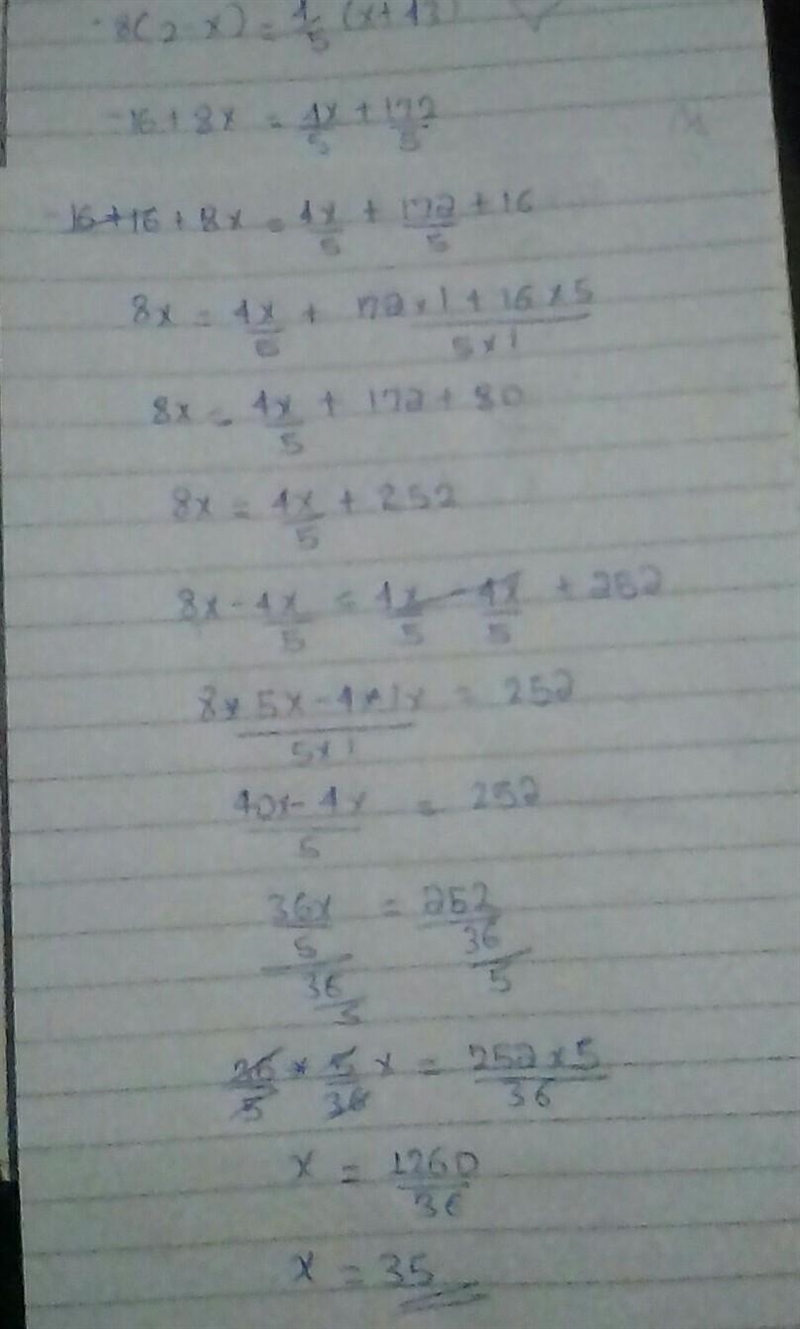 -8(2-x) = 4/5 (x+43)
-16 + 8x = 4x/5 + 172/5
-16+16 + 8x = 4x/5 + 172/5 + 16
8x = 4x/5 + 172×1 + 16×5 / 5×1
8x = 4x/5 + 172 + 80
8x = 4x/5 + 252
8x - 4x/5 = 4x/5 - 4x/5 + 252
8×5x - 4×1x / 5×1 = 252
40x - 4x / 5 = 252
36x/5 / 36/5 = 252 / 36/5
36/5 × 5/36 x = 252×5 / 36
x = 1260/36
x = 35